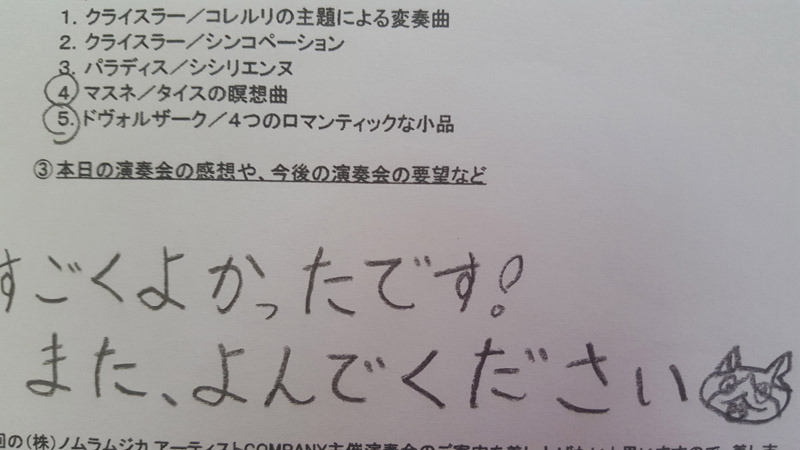 1. クライスラー／コレルリの主題による変奏曲
2. クライスラー／シンコペーション
3. パラディス／シシリエンヌ
4. マスネ／タイスの瞑想曲
5. ドヴォルザーク／4つのロマンティックな小品
③本日の演奏会の感想や、今後の演奏会の要望など
すごくよかったです!
また、よんでください
回の(株)ノムラムジカ アーティストCOMPANY主催演奏会のご案内を差し上げたいと思いますので、差し支